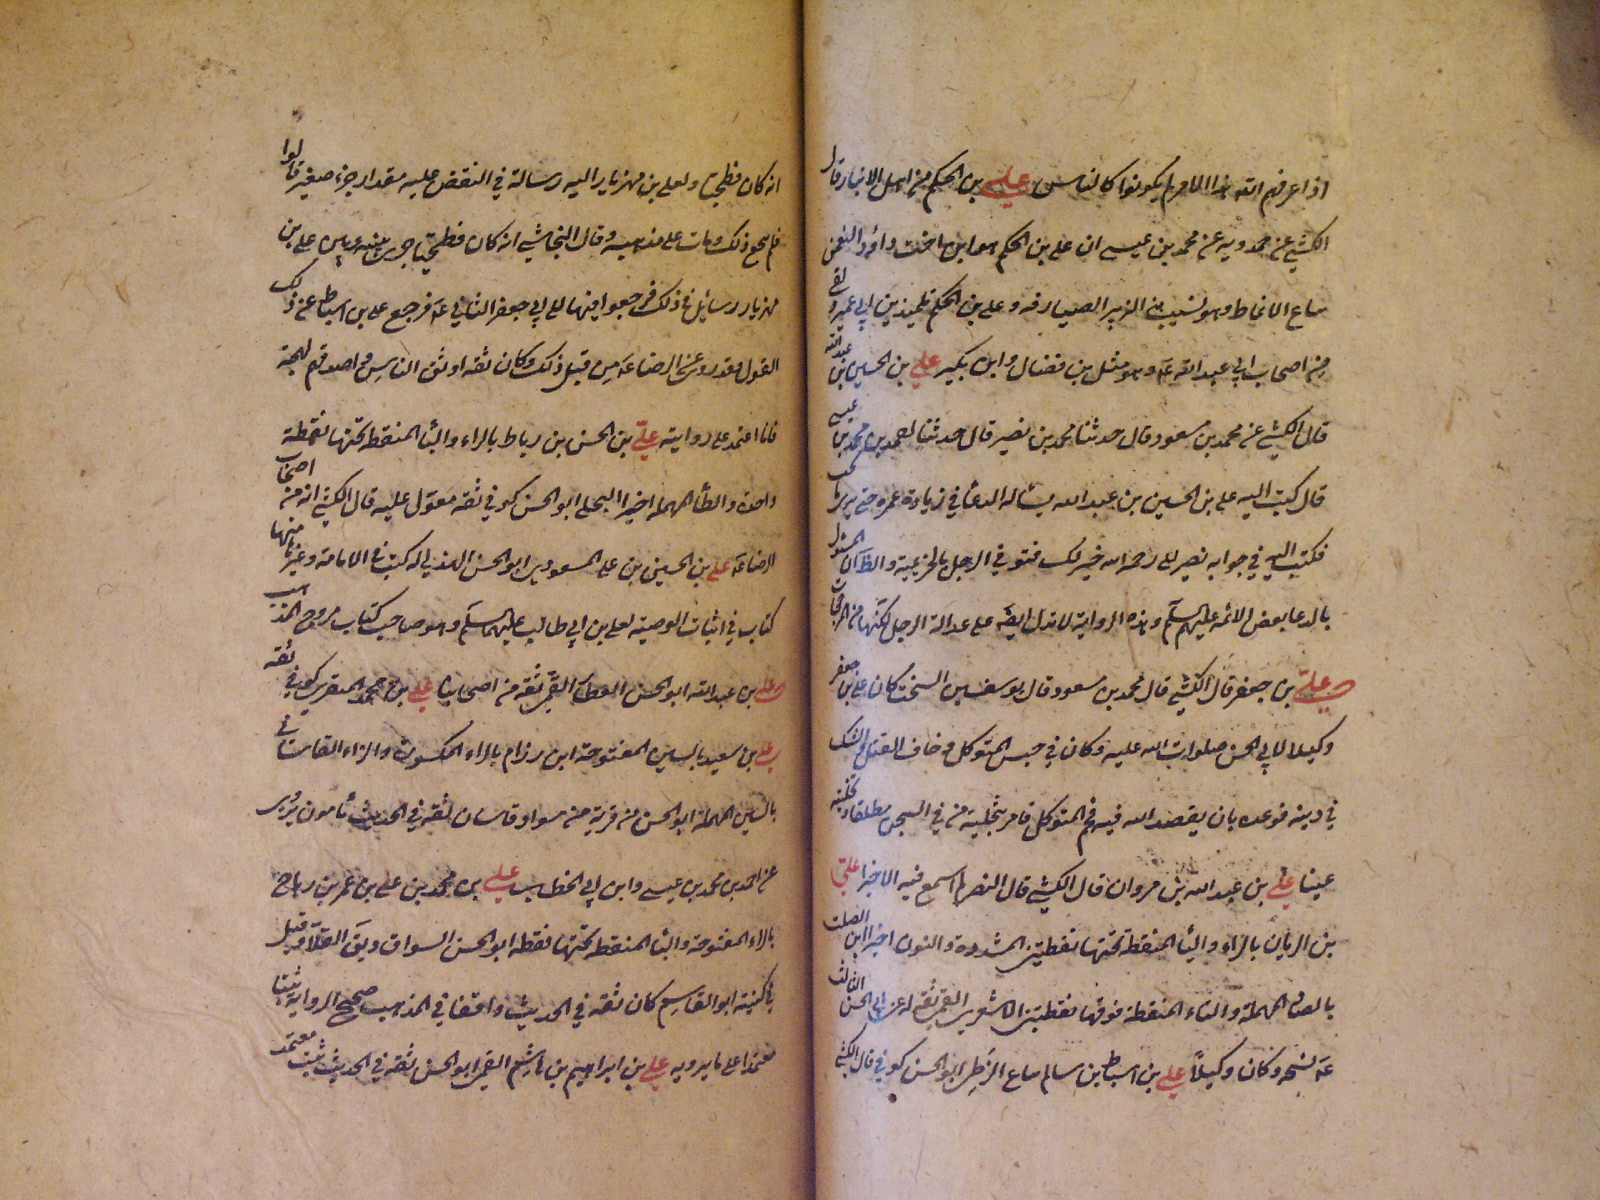 اذا عرفهم الله هذا الامر لم يكونوا كالناس علي بن الحكم من اهل الانبار قال
الكشي عن حمدويه عن محمد بن عيسى ان علي بن الحكم هو ابن اخت داود النعمن
بياع الانماط وهو نسيب بني الزبير الصيارفه وعلي بن الحكم تلميذ بن ابي عمير ولقي
من اصحاب ابي عبد الله عه وهو مثل بن فضال وابن بكير علي بن الحسين بن عبد الله
قال الكشي عن محمد بن مسعود قال حدثنا محمد بن نصير قال حدثنا احمد بن محمد بن عيسى
قال كتب اليه علي بن الحسين بن عبد الله يسأله الدعا في زيادة عمره حتى يرى ما يحب
فكتب اليه في جوابه تصير الى رحمه الله خير لك فتوفي الرجل بالخزيمية والظ ان المسئول
بالدعا بعض الائمه عليهم السلم وهذه الرواية لا تدل ايضه على عدالة الرجل لكنها من المرجحات
علي بن جعفر قال الكشي قال محمد بن مسعود قال يوسف بن السخت كان علي بن جعفر
وكيلا لابي الحسن صلوات الله عليه وكان في حبس المتوكل وخاف القتل والشك
في دينه فوعده بان يقصد الله فيه فحم المتوكل فامر بتخلية من في السجن مطلقا وتخليته
عينا علي بن عبد الله بن مروان قال الكشي قال النصر لم اسمع فيه الا خيرا علي
بن الريان بالراء والياء المنقطة تحتها نقطتين المشددة والنون اخيرا ابن الصلت
بالصاد المهملة والتاء المنقطة فوقها نقطتين الاشعري القمي ثقه له عن ابي الحسن الثالث
عه نسخه وكان وكيلاً علي بن اسباط بن سالم بياع الزطي ابو الحسن كوفي قال الكشي
انه كان فطحيا ولعلي بن مهزيار اليه رسالة في النقض عليه مقدار جزء صغير قالوا
فلم ينجع ذلك ومات على مذهبه وقال النجاشي انه كان فطحيا جرى بينه وبين علي بن
مهزيار رسائل في ذلك فرجعوا فيها الى ابي جعفر الثاني عه فرجع علي بن اسباط عن ذلك
القول وقد روى عن الرضا عه من قبل ذلك وكان ثقه اوثق الناس واصدقهم لهجة
فانا اعتمد على روايته علي بن الحسن بن رباط بالراء والبا المنقطه تحتها نقطة
واحدة والطأ المهملة اخيرا البجلي ابو الحسن كوفي ثقه معول عليه قال الكشي انه من اصحاب
الرضا عه علي بن الحسين بن علي المسعودي ابو الحسن الهذلي له كتب في الامامة وغيرها منها
كتاب في اثبات الوصية لعلي بن ابي طالب عليهم السلم وهو صاحب كتاب مروج الذهب
علي بن عبد الله ابو الحسن العطار القمي ثقه من اصحابنا علي بن محمد المنقري كوفي ثقه
علي بن سعيد بالسين المفتوحة ابن رزام بالراء المكسورة والزاء القاساني
بالسين المهملة ابو الحسن من قرية من سواد قاسان ثقه في الحديث مأمون يروى
عن احمد بن محمد بن عيسى وابن ابي الخطاب علي بن محمد بن علي بن عمر بن رباح
بالراء المفتوحة والبا المنقطه تحتها نقطه ابو الحسن السواق ويق القلا وقيل
في كنيته ابو القاسم كان ثقه في الحديث واقفا في المذهب صحيح الروايه ثبتا
معتمدا على ما يرويه علي بن ابراهيم بن هاشم القمي ابو الحسن ثقه في الحديث ثبت معتمد